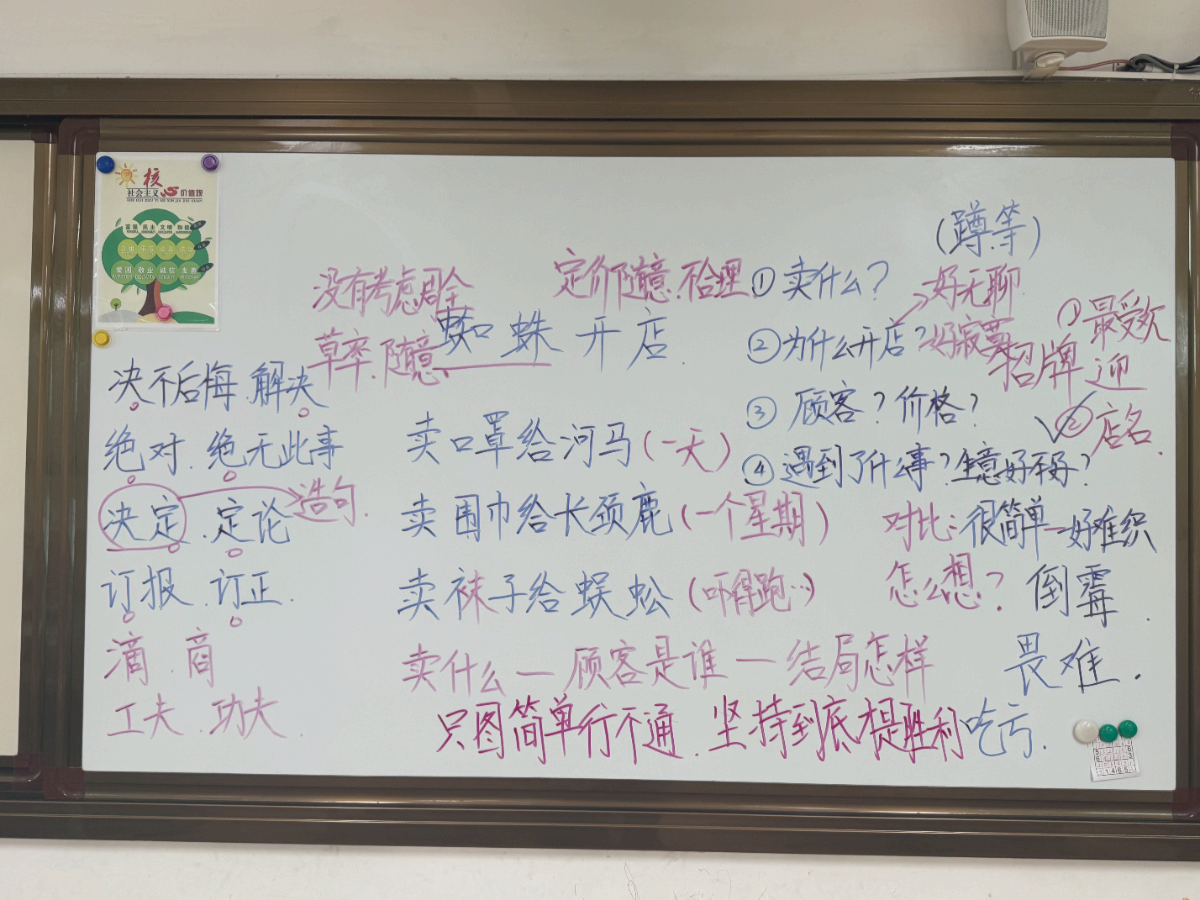 核心
社会主义 价值观
富强 民主 文明 和谐
爱国 敬业 诚信 友善
(蹲.等)
没有考虑周全
定价随意.不合理
①卖什么?
好无聊
草率.随意
蜘蛛开店.
②为什么开店?
好寂寞
招牌
①最受欢迎
②店名.
决不后悔.解决
③顾客?价格?
绝对.绝无此事
卖口罩给河马(一天)
④遇到了什么事?生意好不好?
决定.定论
造句.
卖围巾给长颈鹿(一个星期)
对比:很简单—好难织
订报.订正.
卖袜子给蜈蚣(吓得跑…)
怎么想?
倒霉.
滴.商
卖什么—顾客是谁—结局怎样
畏难.
工夫.功夫.
只图简单行不通.坚持到底是胜利
吃亏.